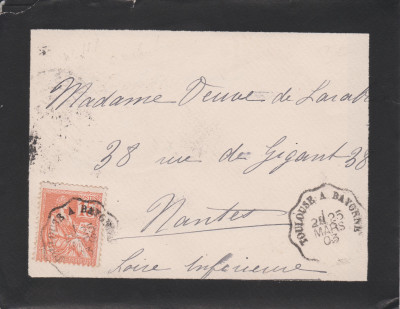 Madame Veuve de Larab
38 rue de Gigant 38
Nantes
Loire Inférieure
TOULOUSE A BAYONNE
25
MARS
03
TOULOUSE A BAYONNE
15